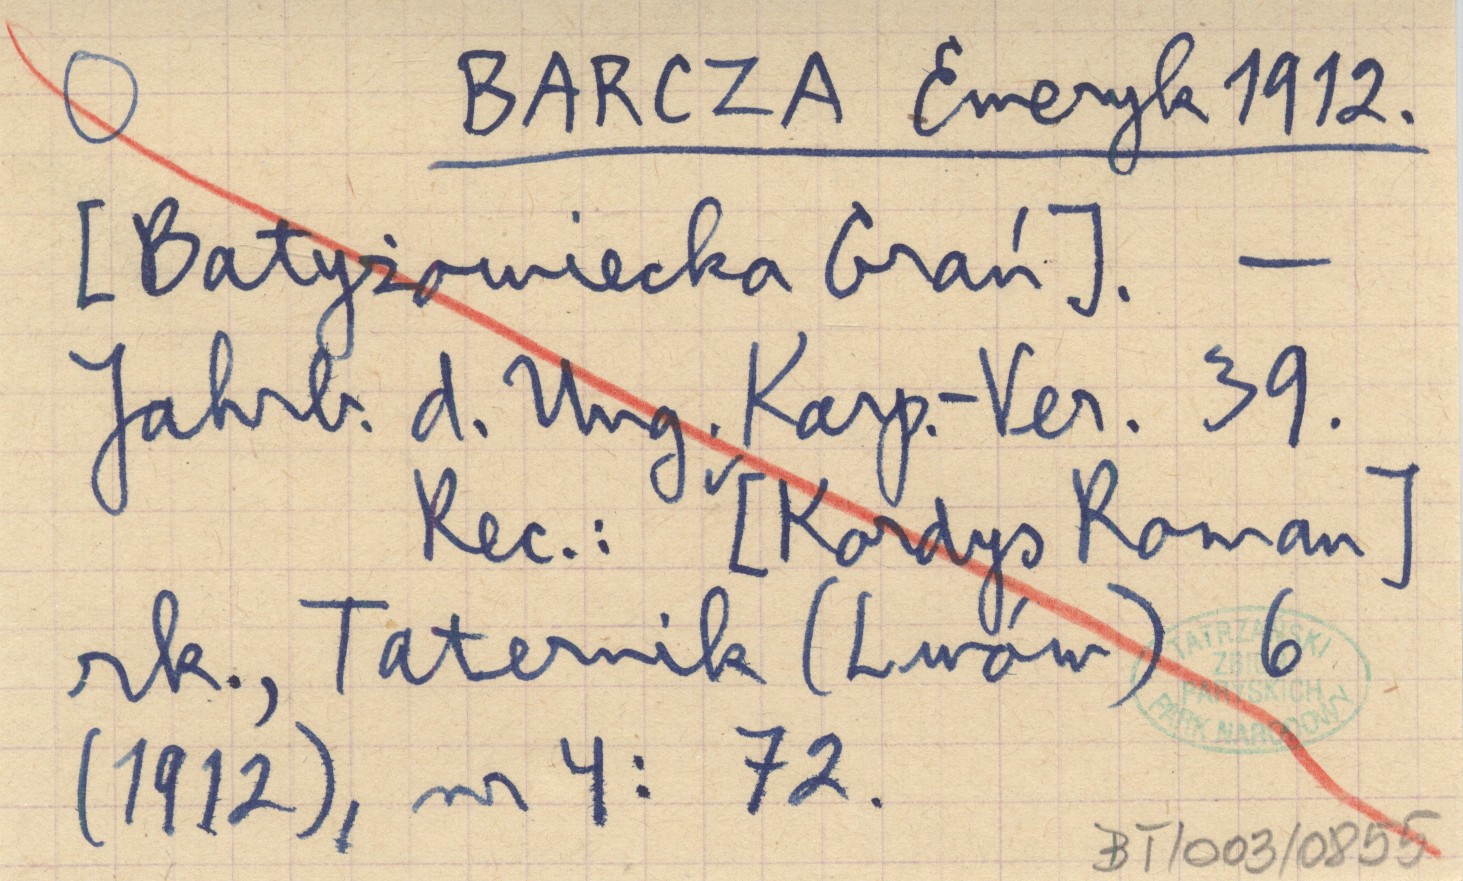 BARCZA Emeryk 1912.
[Batyżowiecka Grań]. —
Jahrb. d. Ung. Karp.-Ver. 39.
Rec.: [Kordys Roman]
rk., Taternik (Lwów) 6
(1912), nr 4: 72.
TATRZAŃSKI
ZBIÓR
PARYSKICH
PARK NARODOWY
BT/003/0855